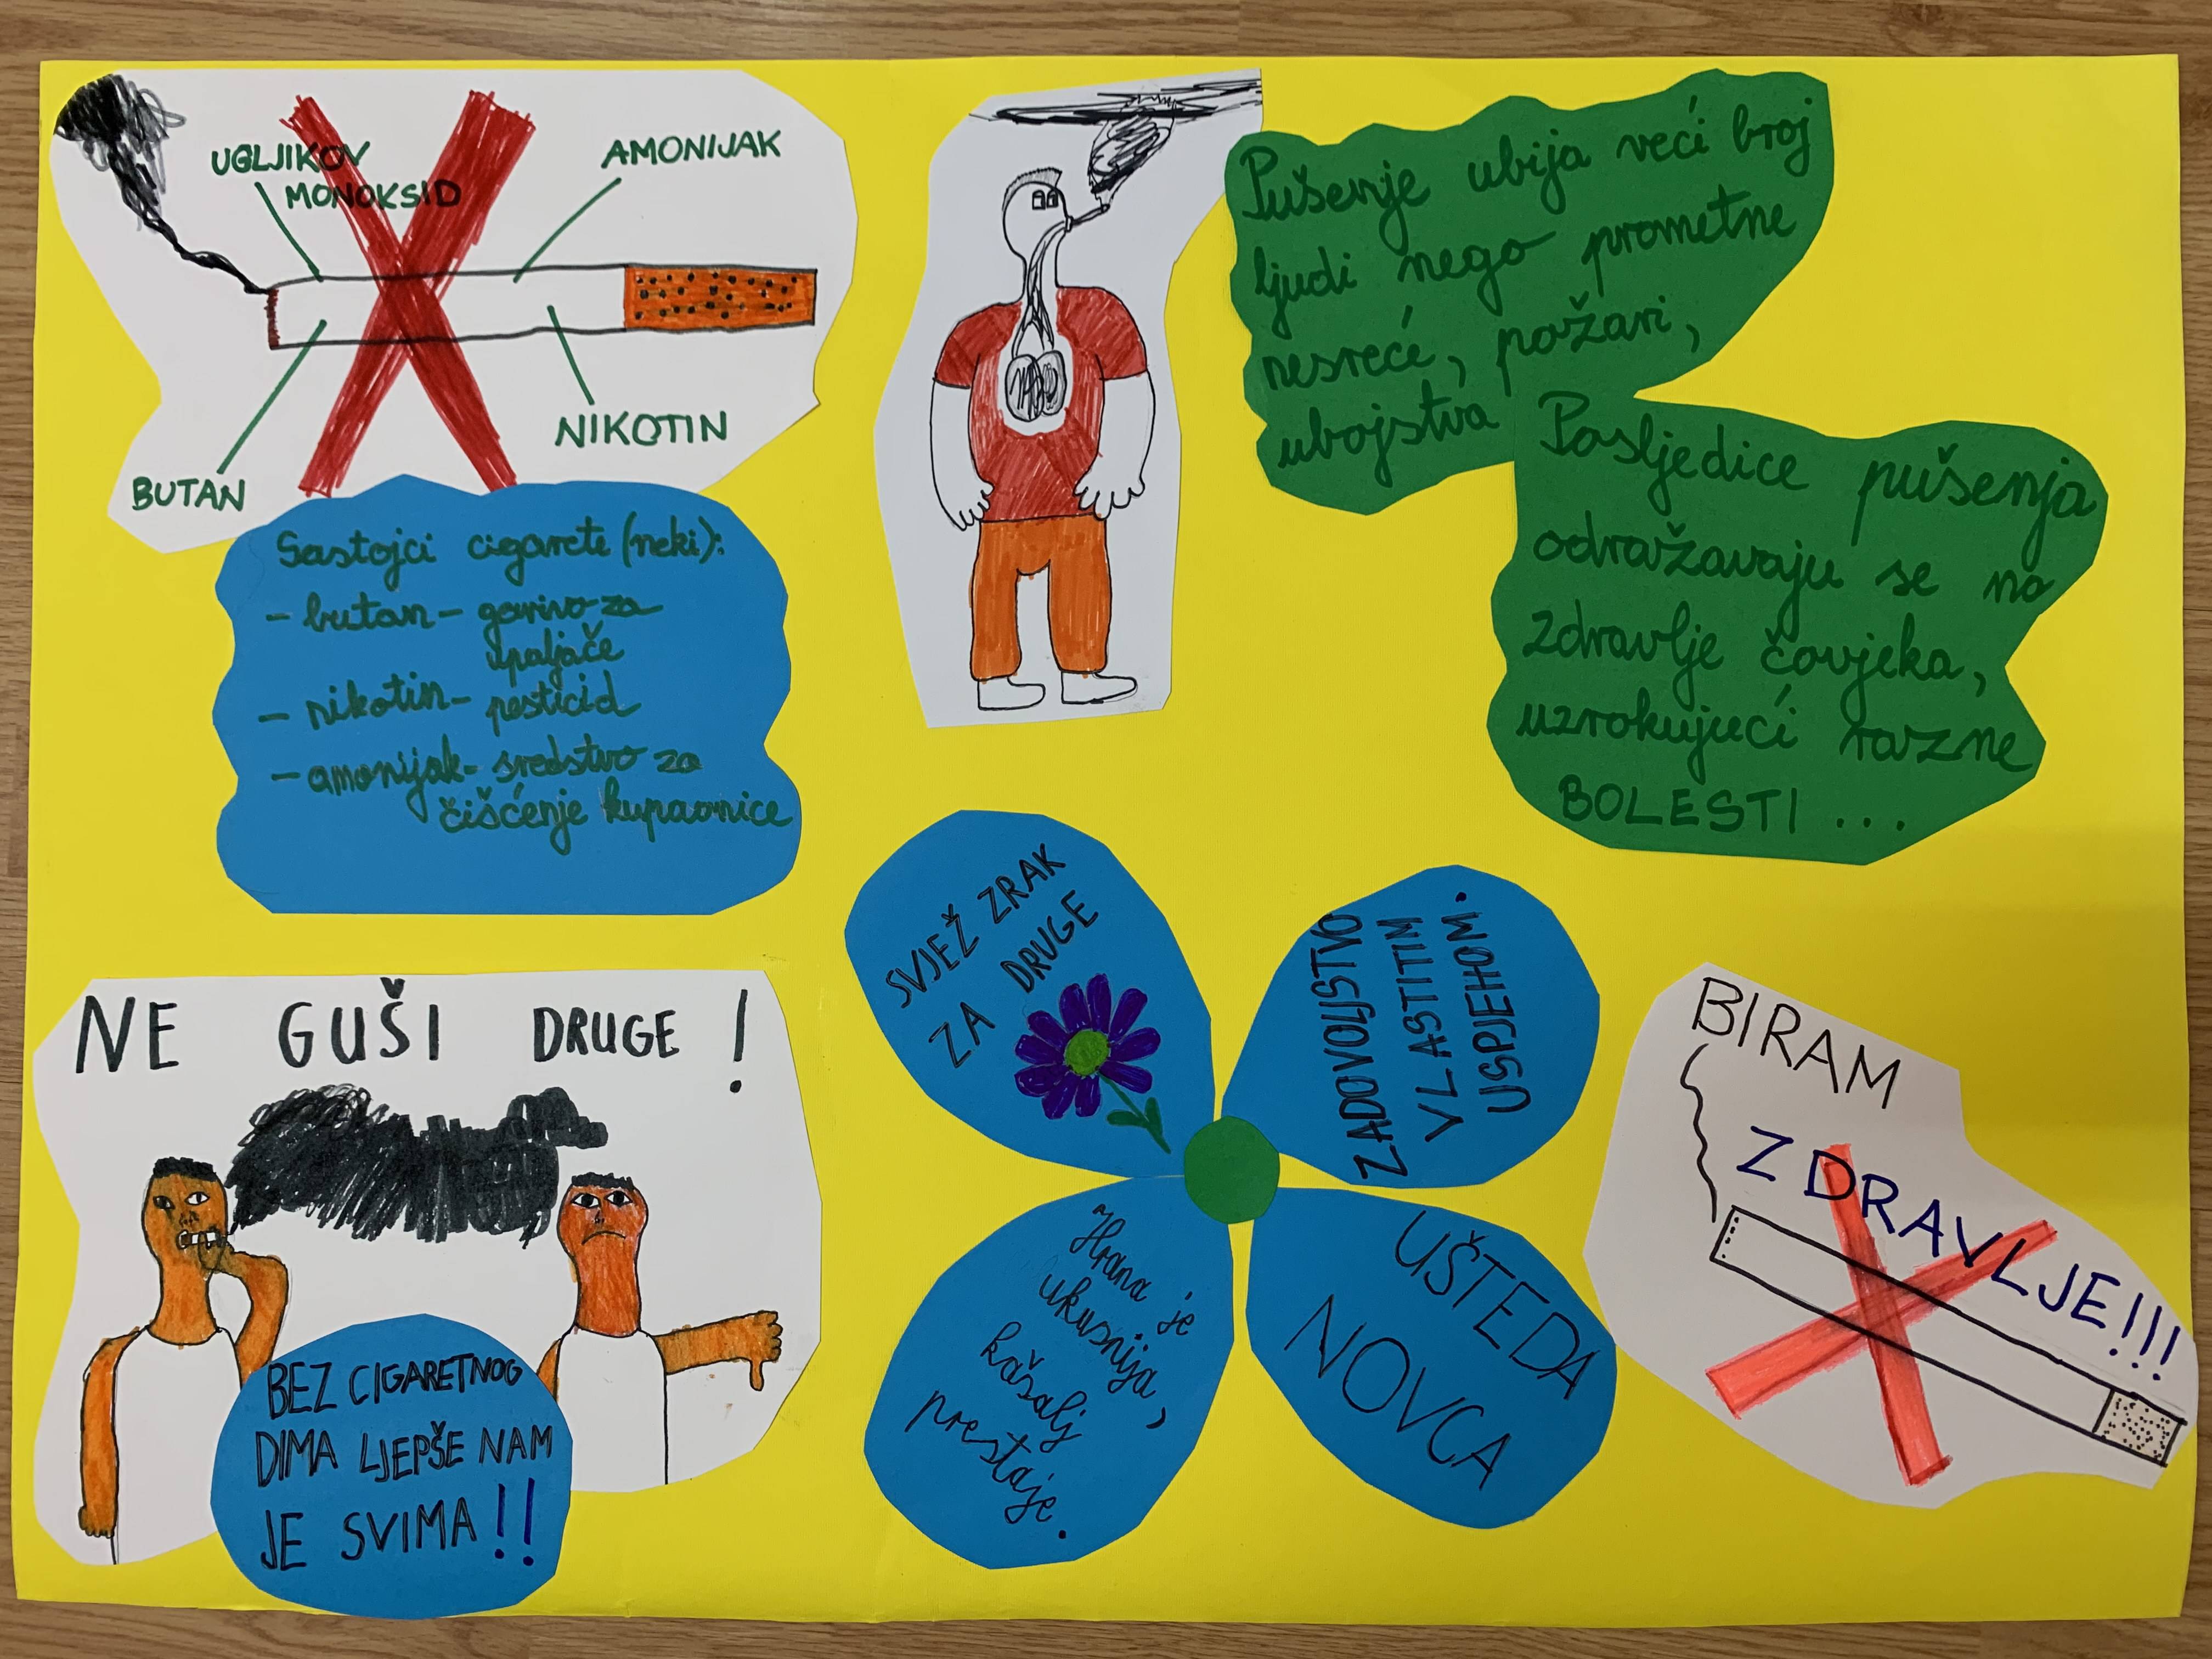 UGLJIKOV
MONOKSID
AMONIJAK
BUTAN
NIKOTIN
Sastojci cigarete (neki):
- butan - gorivo za
upaljače
- nikotin - pesticid
- amonijak - sredstvo za
čišćenje kupaonice
Pušenje ubija veći broj
ljudi nego prometne
nesreće, požari,
ubojstva
Posljedice pušenja
odražavaju se na
zdravlje čovjeka,
uzrokujući razne
BOLESTI ...
NE GUŠI DRUGE !
BEZ CIGARETNOG
DIMA LJEPŠE NAM
JE SVIMA !!
SVJEŽ ZRAK
ZA DRUGE
ZADOVOLJSTVO
VLASTITIM
USPJEHOM.
Hrana je
ukusnija,
kašalj
prestaje.
UŠTEDA
NOVCA
BIRAM
ZDRAVLJE!!!